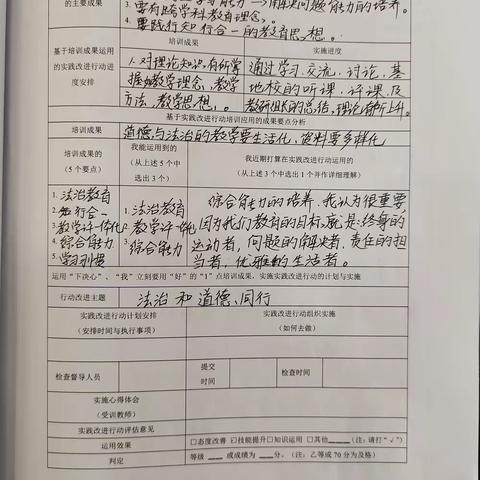 的主要成果
3. 要有跨学科教育理念。
4. 要践行知行合一的教育思想.
基于培训成果运用的实践改进行动进度安排
培训成果
实施进度
1. 对理论知识有所掌握如教学理念、教学方法、教学思想,。
通过学习.交流,讨论,基地校的听课,评课.及教研组长的总结,理论有所上升。
基于实践改进行动培训应用的成果要点分析
培训成果
道德与法治的教学要生活化,资料要多样化
培训成果的
(5个要点)
我能运用到的
(从上述5个中
选出3个)
我近期打算在实践改进行动运用的
(从上述3个中选出1个并作详细理解)
1. 法治教育
2. 知行合一
3. 教学评一体化
4. 综合能力
5. 学习习惯
1. 法治教育
2. 教学评一体化
3. 综合能力
综合能力的培养.我认为很重要
因为我们教育的目标就是:终身的
运动者,问题的解决者.责任的担
当者,优雅的生活者。
运用“下决心”、“我”立刻要用“好”的“1”点培训成果,实施实践改进行动的计划与实施
行动改进主题
法治和道德、同行
实践改进行动计划安排
(安排时间与执行事项)
实践改进行动组织实施
(如何去做)
检查督导人员
提交
时间
检查时间
实施心得体会
(受训教师)
实践改进行动评估意见
运用效果
□态度改善 □技能提升□知识运用 □其他____(注:请打“√”)
判定
等级 ___ 或成绩为 ___分。(注:乙等或70分为及格)